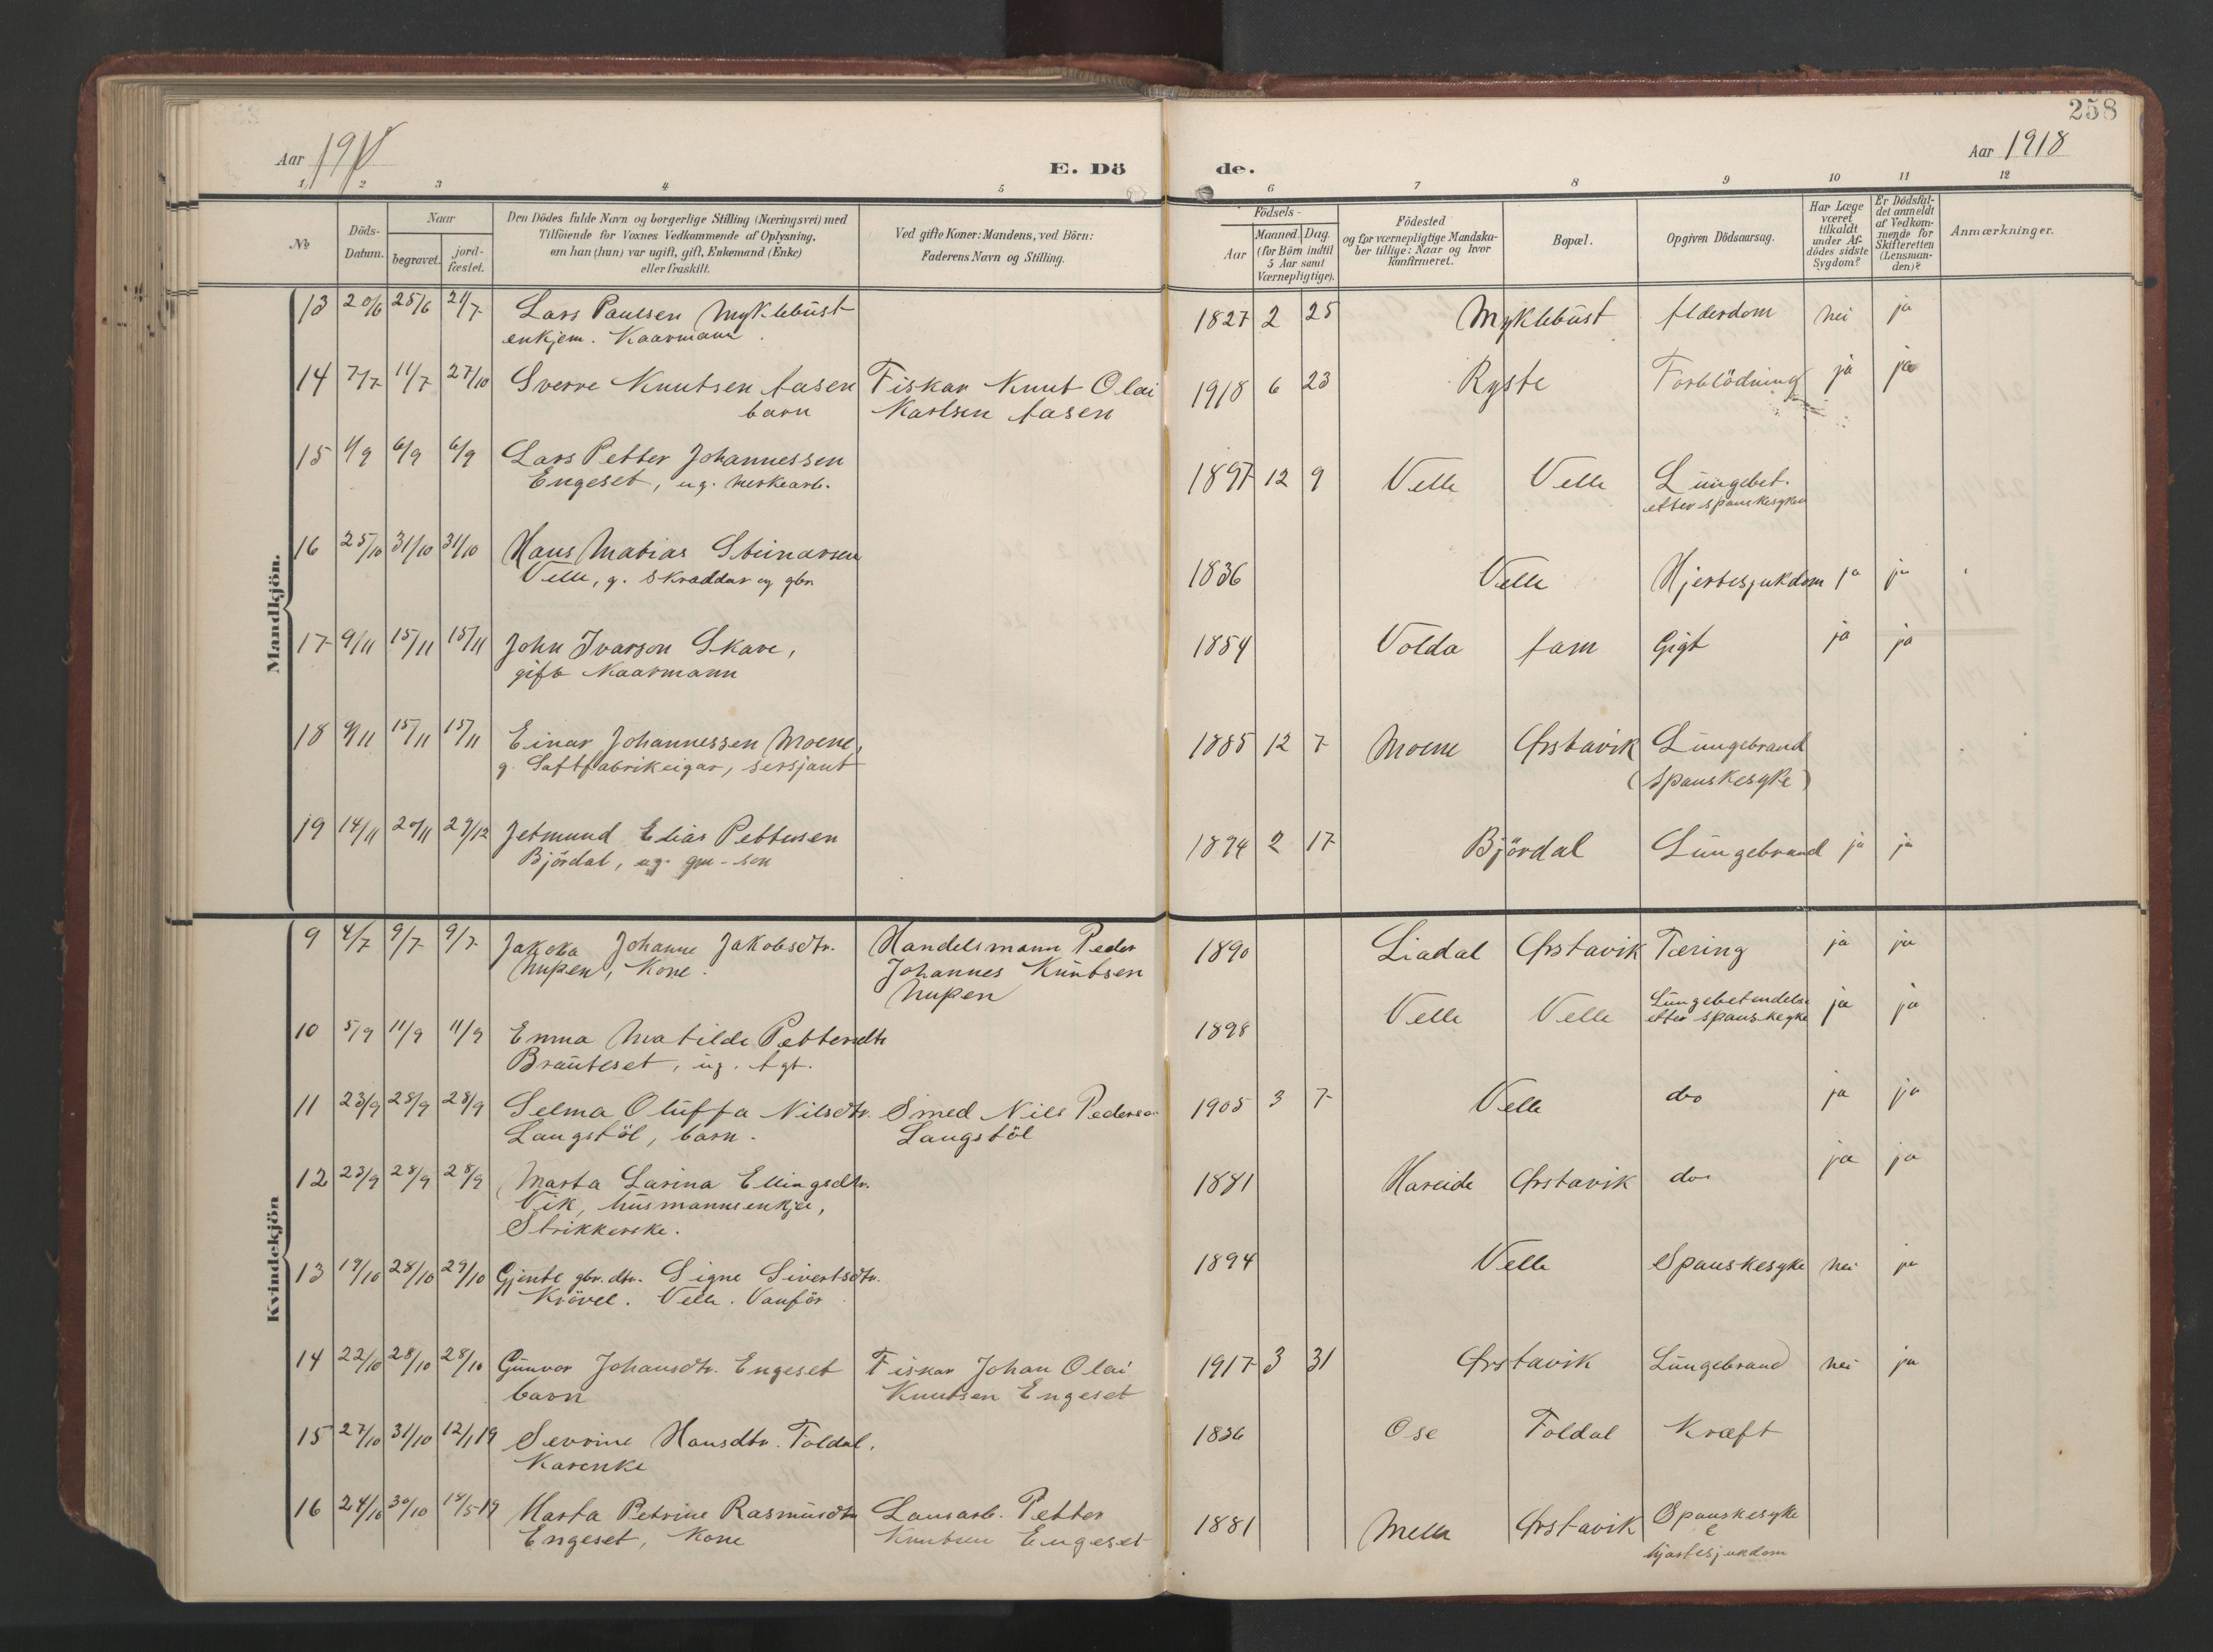 258
Aar 1918
E. Dö
de.
Aar 1918
1 2 3 4 5 6 7 8 9 10 11 12
No
Döds-
Datum.
Naar
begravet.
jord-
fæstet.
Den Dödes fulde Navn og borgerlige Stilling (Næringsvei) med
Tilföiende for Voxnes Vedkommende af Oplysning,
om han (hun) var ugift, gift, Enkemand (Enke)
eller fraskilt.
Ved gifte Koner: Mandens, ved Börn:
Faderens Navn og Stilling.
Födsels-
Aar
Maaned. Dag.
(for Börn indtil
5 Aar samt
Værnepligtige).
Födested
og for værnepligtige Mandska-
ber tillige: Naar og hvor
konfirmeret.
Bopæl.
Opgiven Dödsaarsag.
Har Læge
været
tilkaldt
under Af-
dödes sidste
Sygdom?
Er Dödsfal-
det anmeldt
af Vedkom-
mende for
Skifteretten
(Lensman-
den)?
Anmærkninger.
Mandkjön.
13 20/6 25/6 21/7 Lars Paulsen Myklebust 1827 2 25 Myklebust Alderdom nei ja
enkjem. Kaarmann.
14 7/7 11/7 27/10 Sverre Knutsen Aasen Fiskar Knut Olai 1918 6 23 Ryste Forblödning ja ja
barn Karlsen Aasen
15 1/9 6/9 6/9 Lars Petter Johannessen 1897 12 9 Velle Velle Lungebet.
Engeset, ug. etter spanskesyken
16 25/10 31/10 31/10 Hans Matias Steinarsen 1836 Velle Hjertesjukdom ja ja
Velle, g. skraddar og gbr.
17 9/11 15/11 15/11 John Ivarson Skare, 1854 Volda Aam Gigt ja ja
gift Kaarmann
18 9/11 15/11 15/11 Einar Johannessen Moene, 1885 12 7 Moene Ørstavik Lungebrand
g. Saftfabrikeigar, sersjant (spanskesyke)
19 14/11 20/11 29/12 Jetmund Elias Pettersen 1894 2 17 Björdal Lungebrand ja ja
Björdal, ug. son
Kvindekjön
9 4/7 9/7 9/7 Jakoba Johanne Jakobsdtr. Handelsmann Peder 1890 Liadal Ørstavik Tæring ja ja
Nupen, Kone. Johannes Knutsen
Nupen
10 5/9 11/9 11/9 Emma Matilde Pettersdtr 1898 Velle Velle Lungebetendelse ja ja
Brauteset, ug. etter spanskesyke
11 23/9 28/9 28/9 Selma Oluffa Nilsdtr. Smed Nils Pederson 1905 3 7 Velle do ja ja
Langstöl, barn. Langstöl
12 23/9 28/9 28/9 Marta Larina Ellingsdtr. 1881 Hareide Ørstavik do ja ja
Vik, husmannsenkje,
Strikkerske.
13 19/10 28/10 29/10 Gjente gbr. dtr. Signe Sivertsdtr. 1894 Velle Spanskesyke nei ja
Krövel. Velle. Vanför
14 22/10 28/10 28/10 Gunvor Johansdtr. Engeset Fiskar Johan Olai 1917 3 31 Ørstavik Lungebrand nei ja
barn Knutsen Engeset
15 27/10 31/10 12/1 19 Severine Hansdtr. Foldal, 1836 Ose Foldal Kræft
Karenke
16 24/10 30/10 18/5-19 Marta Petrine Rasmusdtr Lausarb. Petter 1881 Melle Ørstavik Spanskesyke
Engeset, Kone Knutsen Engeset
hjartesjukdom